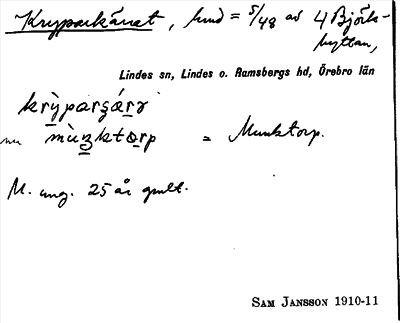 Kryparkärret, hmd = 5/48 av 4 Björk-
hyttan,
Lindes sn, Lindes o. Ramsbergs hd, Örebro län
krỳparʒá̤rə
nu mùŋktɷrp = Munktorp.
M. ung. 25 år gmlt.
SAM JANSSON 1910-11